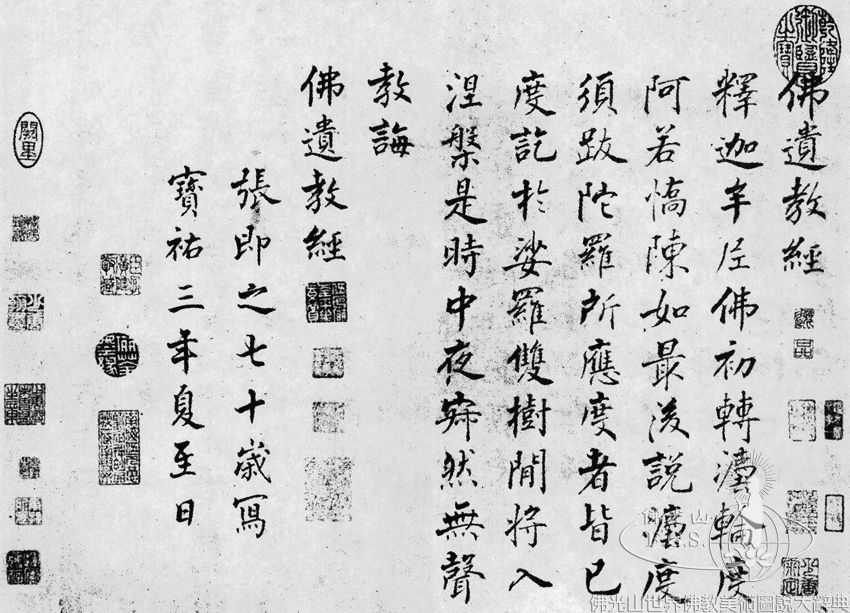 佛遺教經
釋迦牟尼佛初轉灋輪度
阿若憍陳如最後說灋度
須跋陀羅所應度者皆已
度訖於娑羅雙樹間將入
涅槃是時中夜寂然無聲
教誨
佛遺教經
張即之七十歲寫
寶祐三年夏至日
乾隆御覽之寶
闕里
佛光山世界佛教美術圖說大辭典